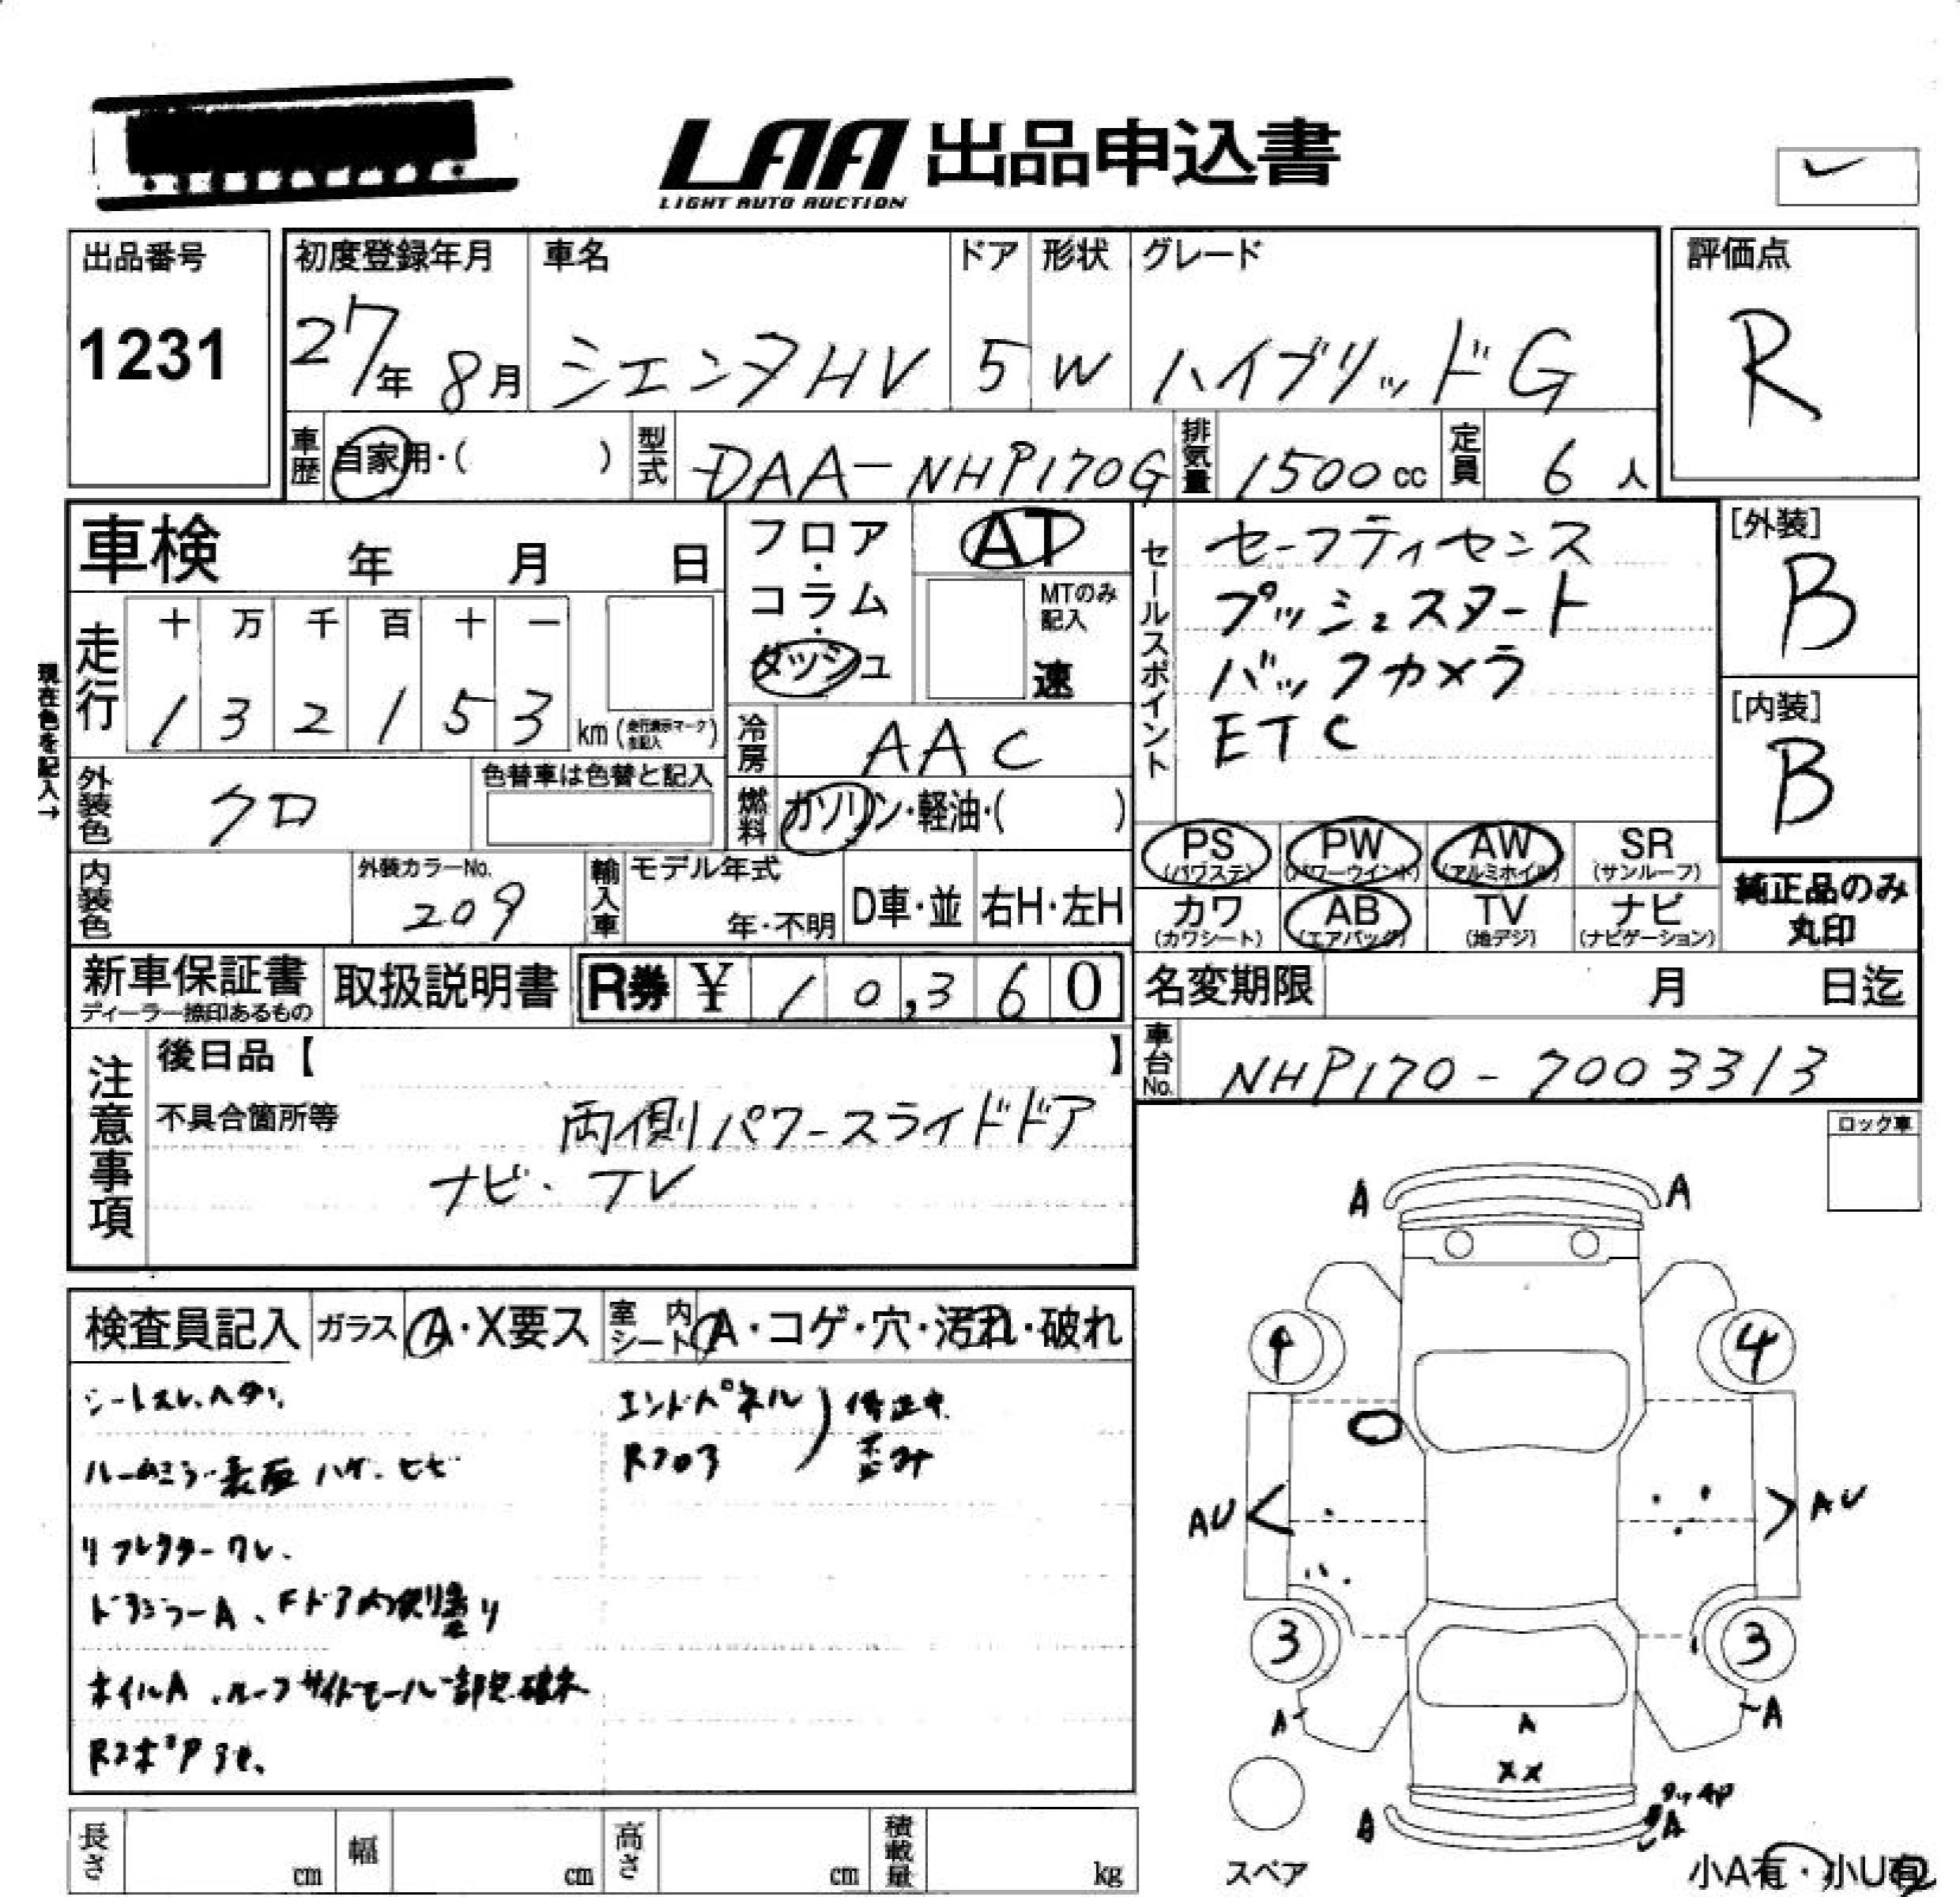 LAA 出品申込書
LIGHT AUTO AUCTION
出品番号
1231
初度登録年月
27年 8月
車名
シエンタHV
ドア
5
形状
W
グレード
ハイブリッドG
評価点
R
車歴 自家用・( )
型式 DAA-NHP170G
排気量 1500cc
定員 6人
車検 年 月 日
フロア・コラム・ダッシュ
AT
MTのみ記入
速
セールスポイント
セーフティセンス
プッシュスタート
バックカメラ
ETC
[外装]
B
[内装]
B
現在色を記入→
走行 十 万 千 百 十 一
1 3 2 1 5 3 km (走行表示マークを記入)
冷房 AAC
外装色 クロ
色替車は色替と記入
燃料 ガソリン・軽油・( )
PS (パワステ)
PW (パワーウインド)
AW (アルミホイル)
SR (サンルーフ)
カワ (カワシート)
AB (エアバッグ)
TV (地デジ)
ナビ (ナビゲーション)
純正品のみ丸印
内装色
外装カラーNo.
209
輸入車 モデル年式
年・不明
D車・並
右H・左H
新車保証書
ディーラー捺印あるもの
取扱説明書
R券 ¥ 10,360
名変期限 月 日迄
車台No. NHP170-7003313
注意事項
後日品【 】
不具合箇所等
両側パワースライドドア
ナビ・TV
ロック車
検査員記入
ガラス A・X要ス
室内シート A・コゲ・穴・汚れ・破れ
シートスレ、ヘタリ
ルームミラー表面ハゲ・ヒビ
リフレクターワレ
ドアミラーA、Fドア内側塗り
ホイルA、ルーフサイドモール一部破れ
エンドパネル
Rフロア
歪み
A A
4 4
AU AU
3 3
A A
A
XX
A A
スペア
小A有・小U有
長さ cm
幅 cm
高さ cm
積載量 kg